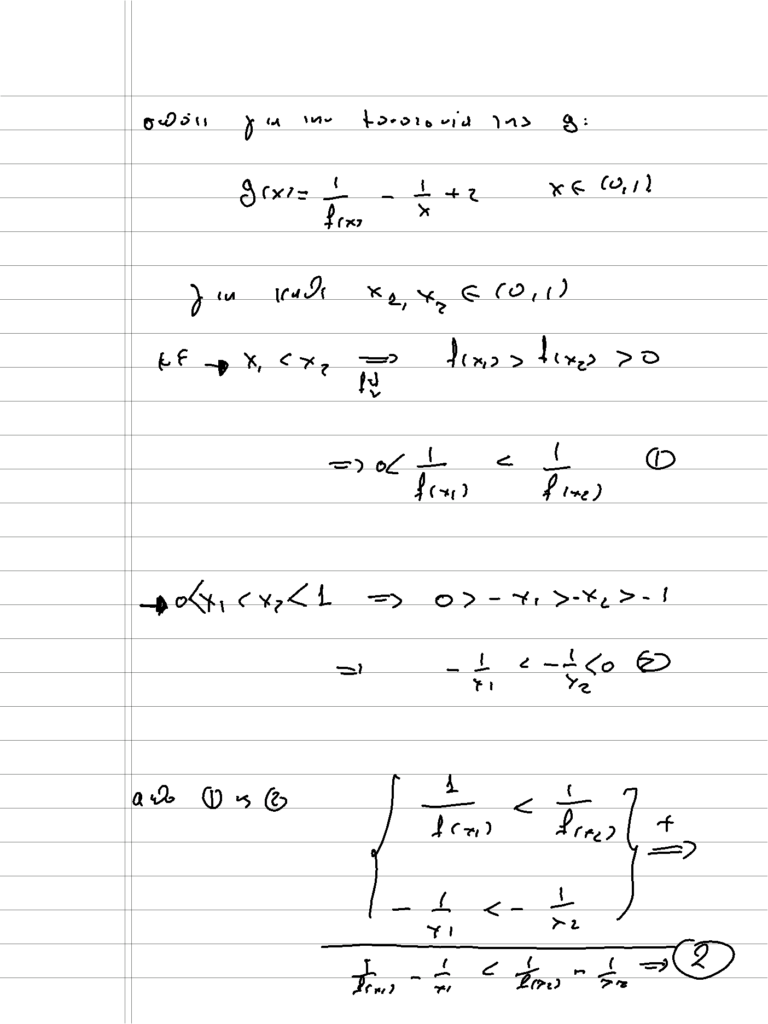 οπότε για την μονοτονία της g:
g(x) = 1/f(x) - 1/x + 2 x ∈ (0,1)
για κάθε x₂, x₂ ∈ (0,1)
με → x₁ < x₂ ⟹ f↓ f(x₁) > f(x₂) > 0
⟹ 0 < 1/f(x₁) < 1/f(x₂) ①
→ 0 < x₁ < x₂ < 1 ⟹ 0 > -x₁ > -x₂ > -1
⟹ -1/x₁ < -1/x₂ < 0 ②
από ① κ ②
{ 1/f(x₁) < 1/f(x₂)
- 1/x₁ < - 1/x₂ } + ⟹
1/f(x₁) - 1/x₁ < 1/f(x₂) - 1/x₂ ⟹ ②